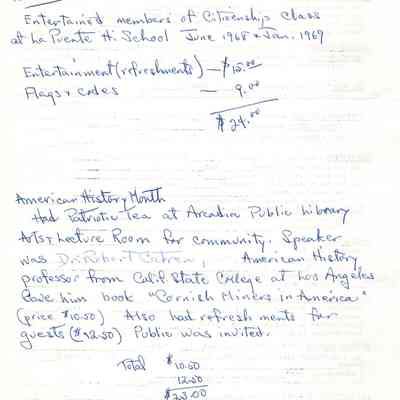 Entertained members of Citizenship class
at La Puente Hi School June 1968 & Jan. 1969
Entertainment (refreshments) — $15.00
Flags & codes — 9.00
$24.00
American History Month
Had Patriotic Tea at Arcadia Public Library
Arts & Lecture Room for community. Speaker
was Dr. Robert American History
professor from Calif. State College at Los Angeles
Gave him book "Cornish Miners in America"
(price $10.50) Also had refreshments for
guests ($12.50) Public was invited.
Total $10.50
12.50
$23.00